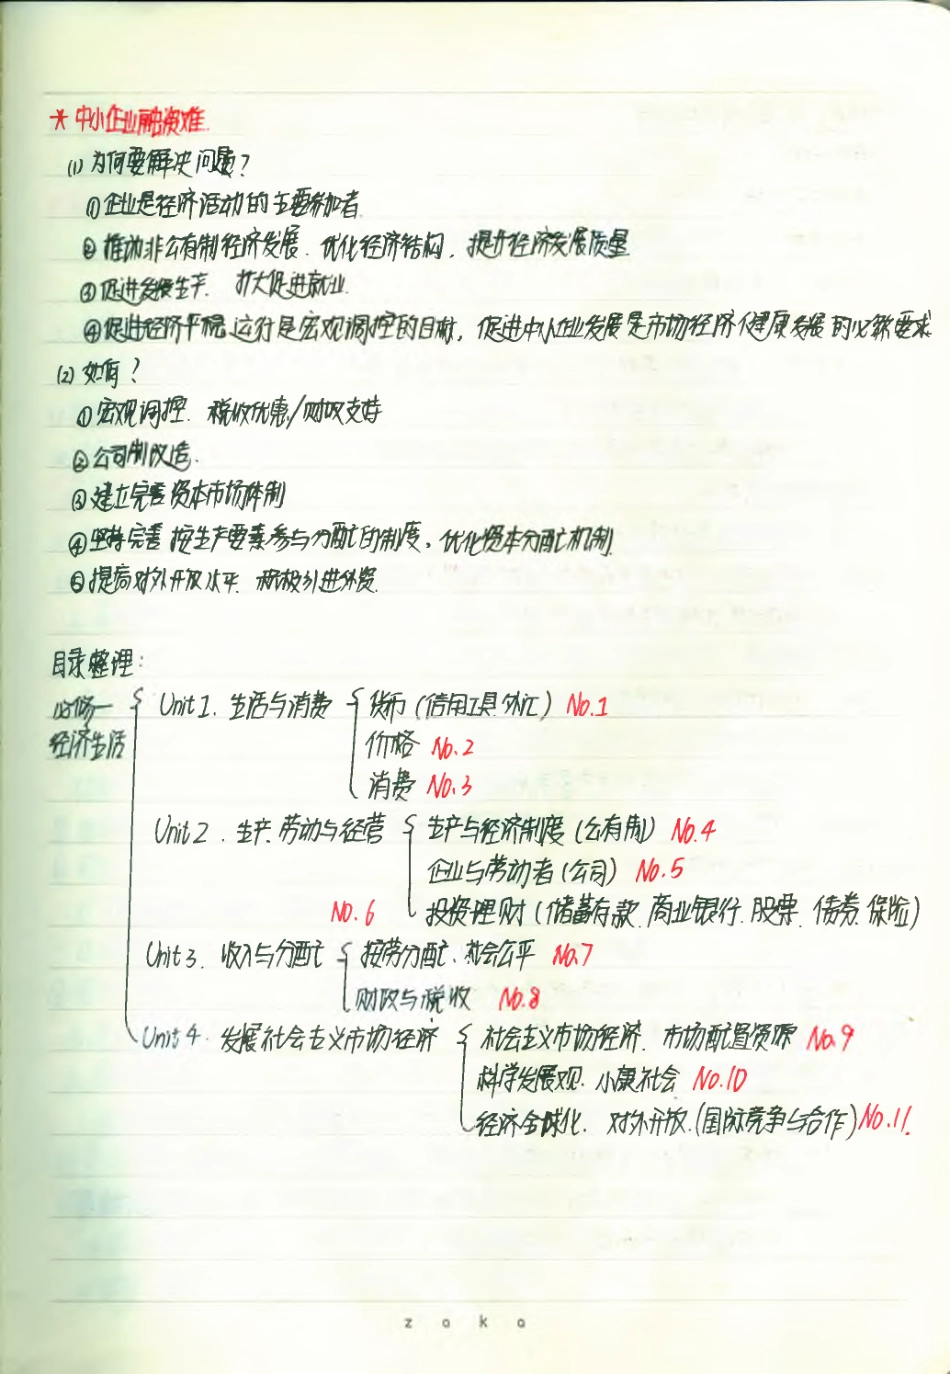 * 中小企业融资难.
(1) 为何要解决问题?
①企业是经济活动的主要参加者.
②推动非公有制经济发展. 优化经济结构, 提升经济发展质量
③促进发展生产. 扩大促进就业.
④促进经济平稳运行是宏观调控的目标, 促进中小企业发展是市场经济健康发展的必然要求
(2) 如何?
①宏观调控. 税收优惠/财政支持
②公司制改造.
③建立完善资本市场体制
④坚持完善按生产要素参与分配的制度、优化资本分配机制.
⑤提高对外开放水平. 积极引进外资.
目录整理:
必修一 Unit 1. 生活与消费 货币 (信用工具.外汇) No.1
经济生活 价格 No.2
消费 No.3
Unit 2. 生产.劳动与经营 生产与经济制度 (公有制) No.4
企业与劳动者 (公司) No.5
No.6 投资理财 (储蓄存款.商业银行.股票.债券.保险)
Unit 3. 收入与分配 按劳分配、社会公平 No.7
财政与税收 No.8
Unit 4. 发展社会主义市场经济 社会主义市场经济. 市场配置资源 No.9
科学发展观. 小康社会 No.10
经济全球化. 对外开放.(国际竞争与合作) No.11.
zoko